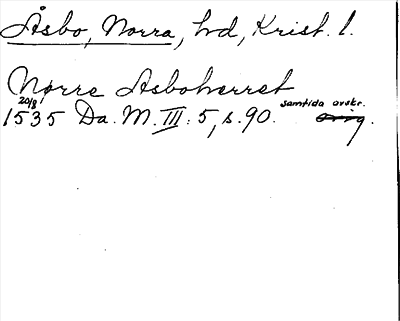 Åsbo, Norra, hd, Krist. l.
Nørre Asboherret
20/8 samtida avskr.
1535 Da. M. III: 5, s. 90. orig.